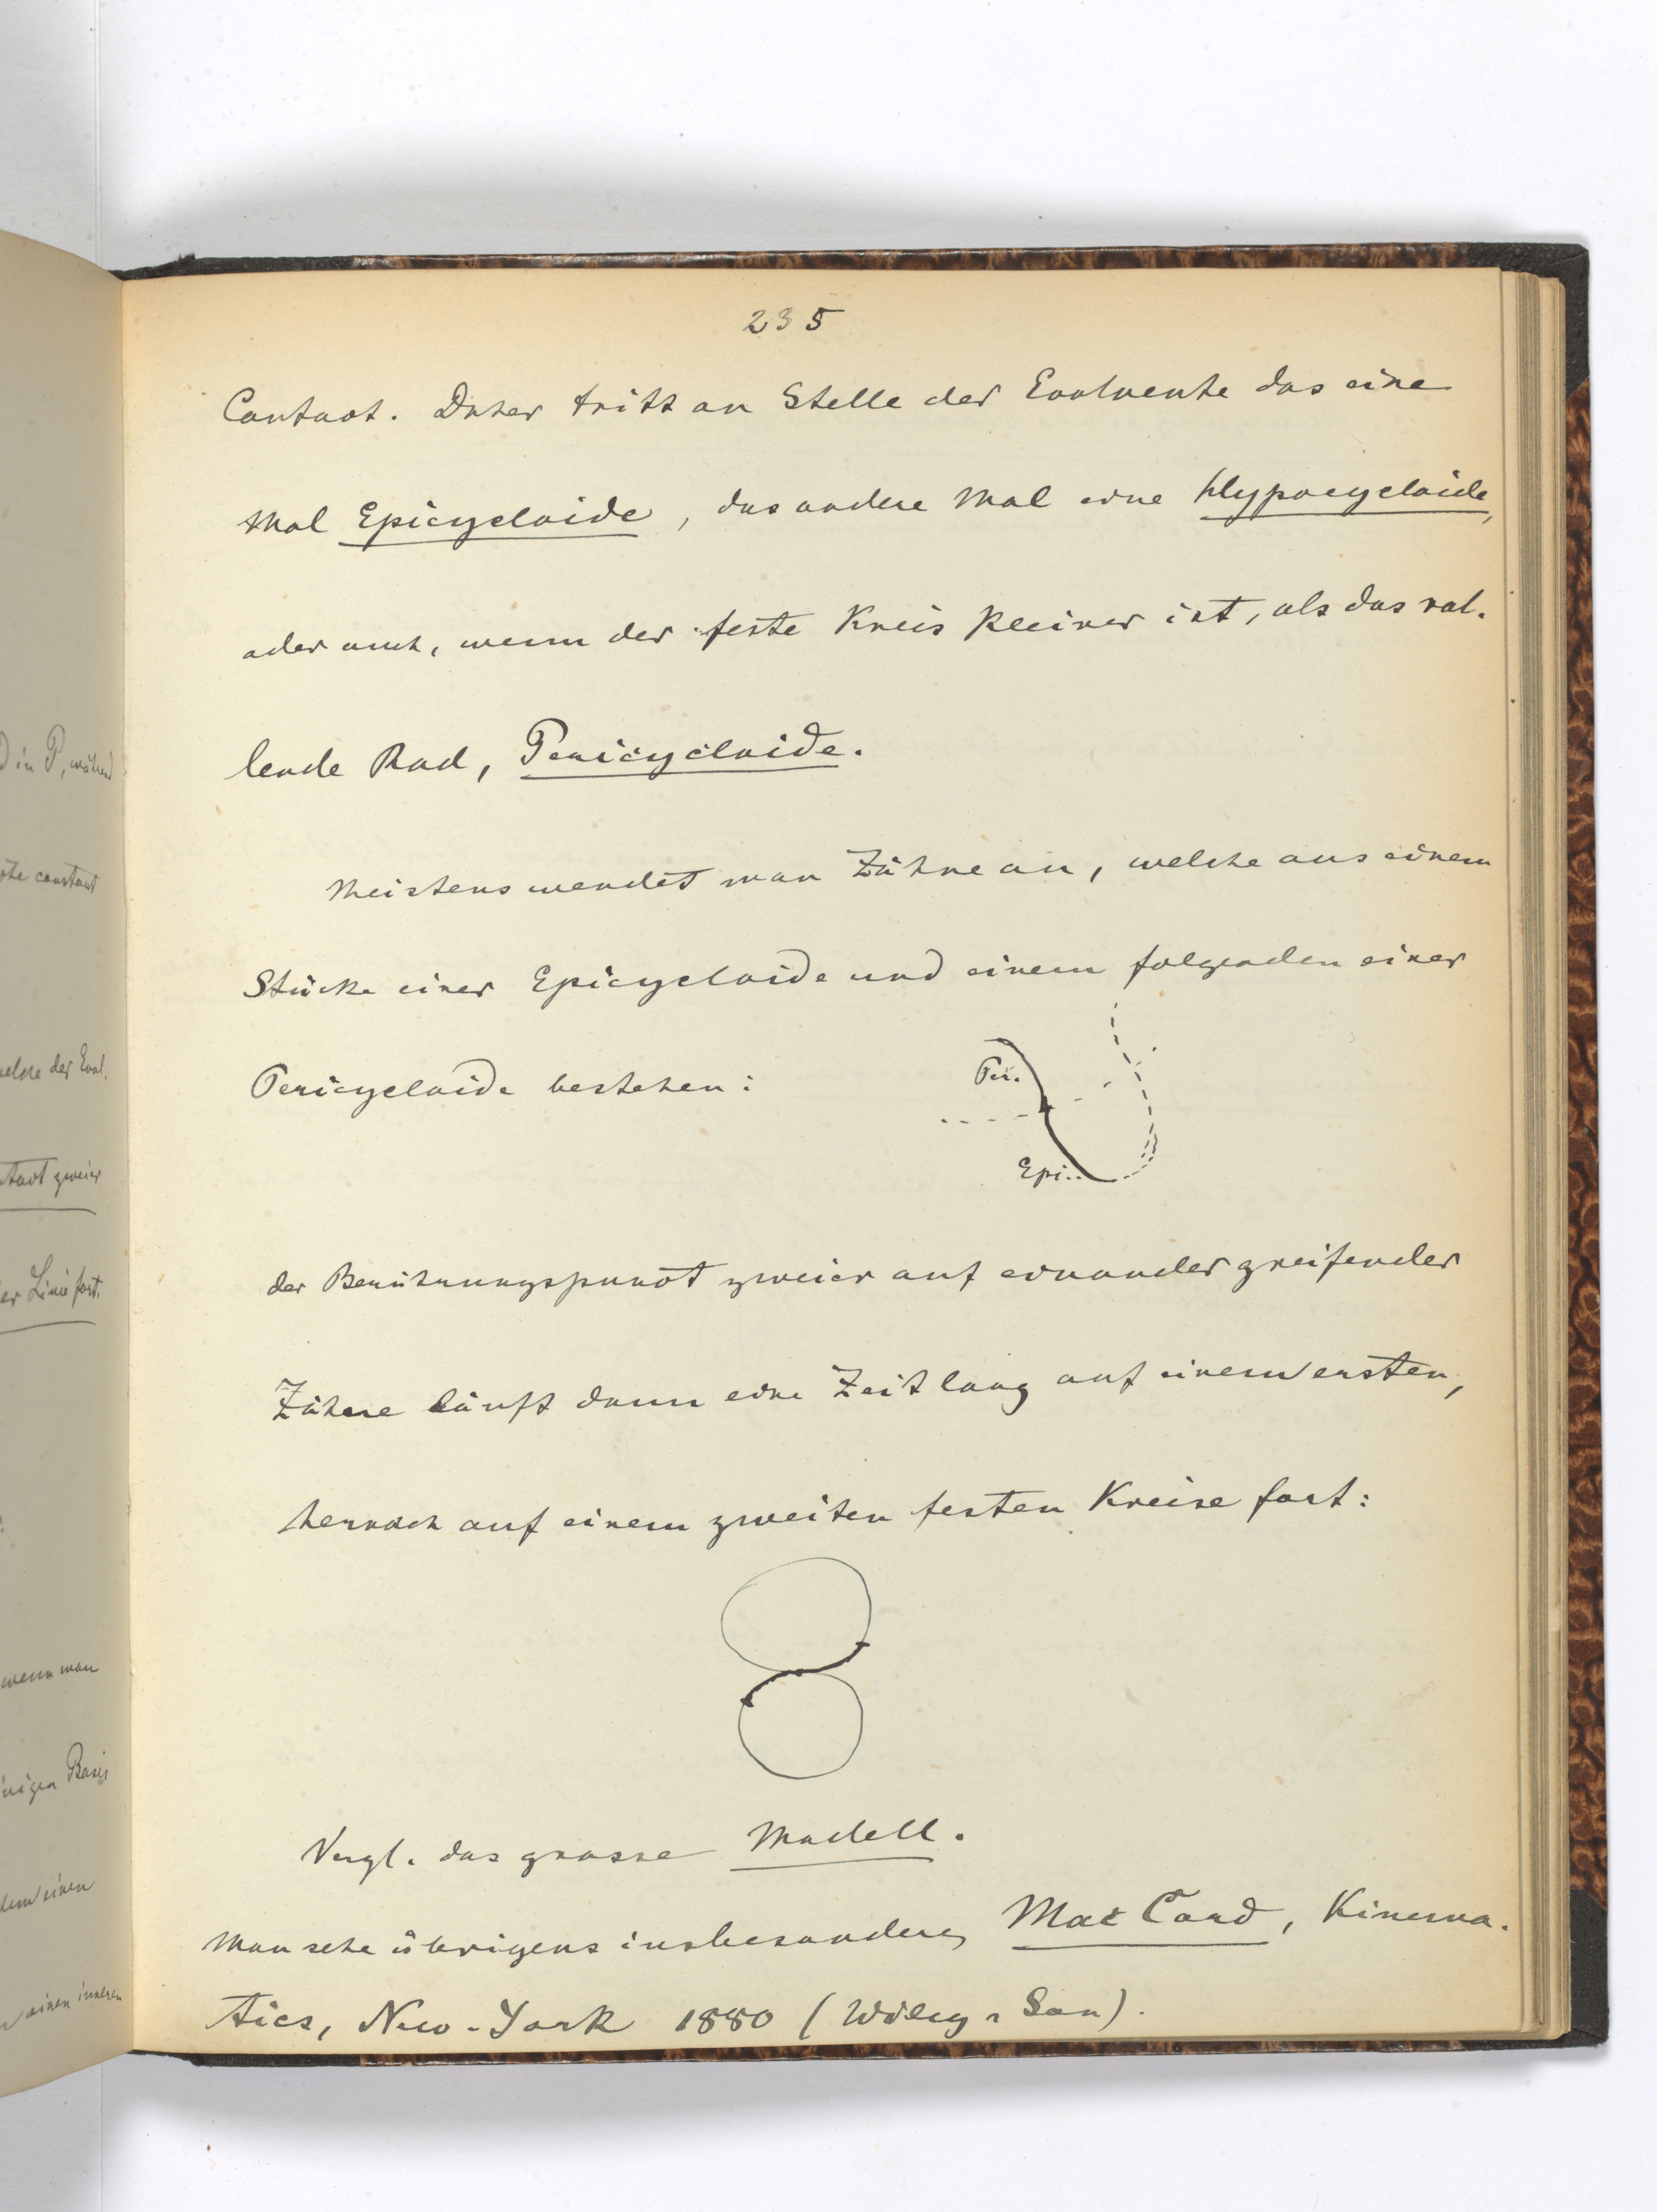 235
Contact. Daher tritt an Stelle der Evolvente das eine
Mal Epicycloide, das andere Mal eine Hypocycloide,
oder auch, wenn der feste Kreis kleiner ist, als das rol-
lende Rad, Pericycloide.
Meistens wendet man Zähne an, welche aus einem
Stücke einer Epicycloide und einem folgenden einer
Pericycloide bestehen:
Per.
Epi..
der Berührungspunct zweier auf einander greifender
Zähne läuft dann eine Zeit lang auf einem ersten,
hernach auf einem zweiten festen Kreise fort:
Vergl. das grosse Modell.
Man sehe übrigens insbesondere, Mac Cord, Kinema-
tics, New-York 1880 (Wiley & Son).
D in P, während
constant
der Evol.
zweier
er Linie fort.
wenn man
Basis
einen
einen inneren